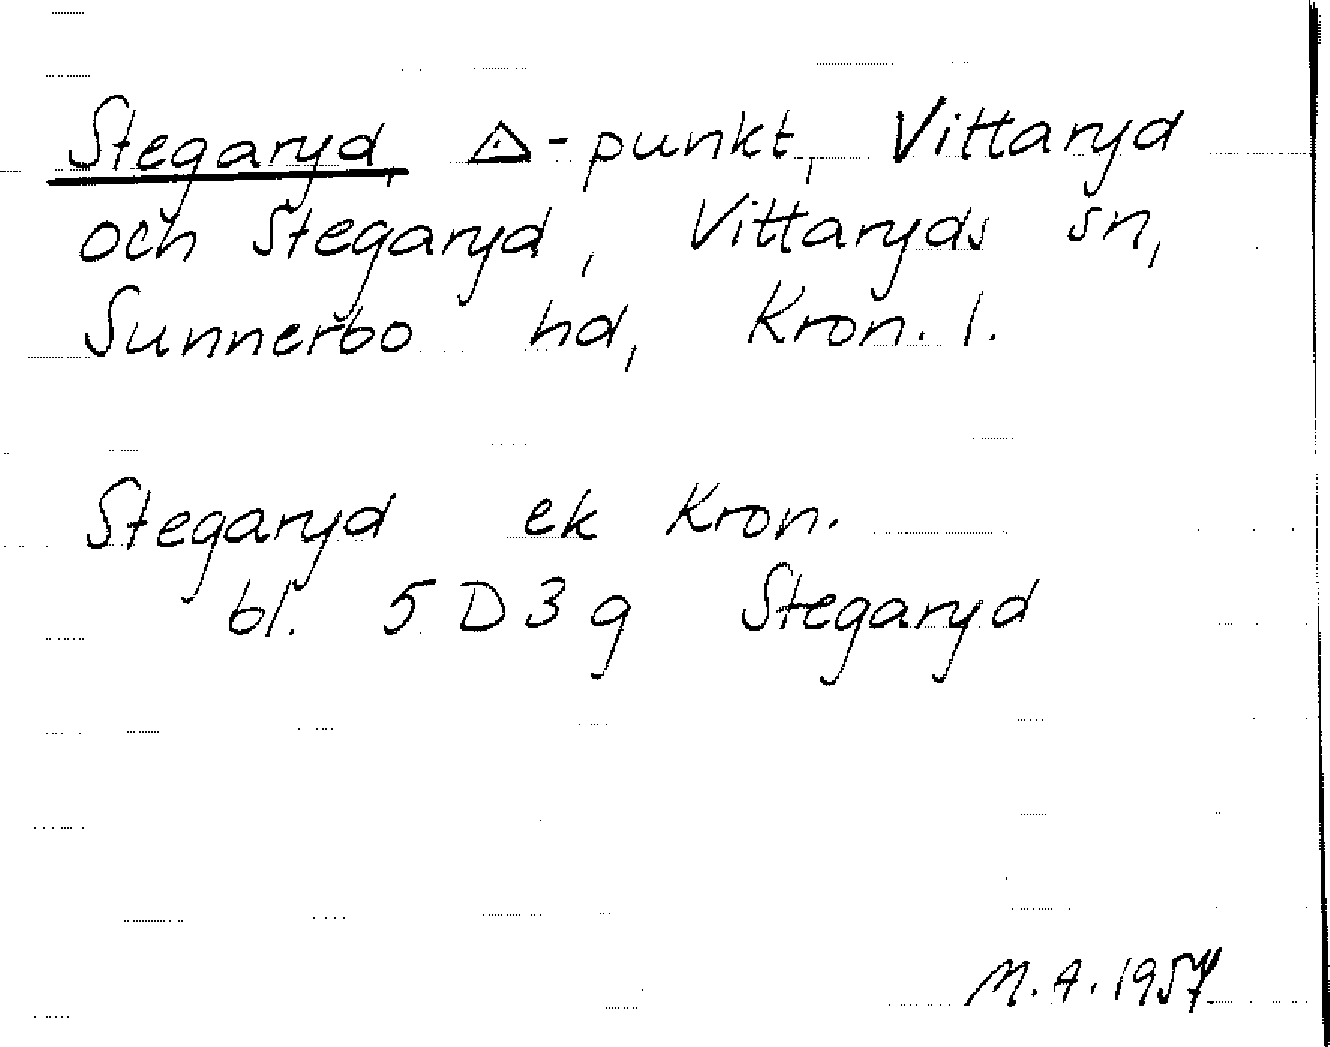 Stegaryd, △-punkt, Vittaryd
och Stegaryd, Vittaryds sn,
Sunnerbo hd, Kron. l.
Stegaryd ek Kron.
bl. 5D3g Stegaryd
M.A. 1957